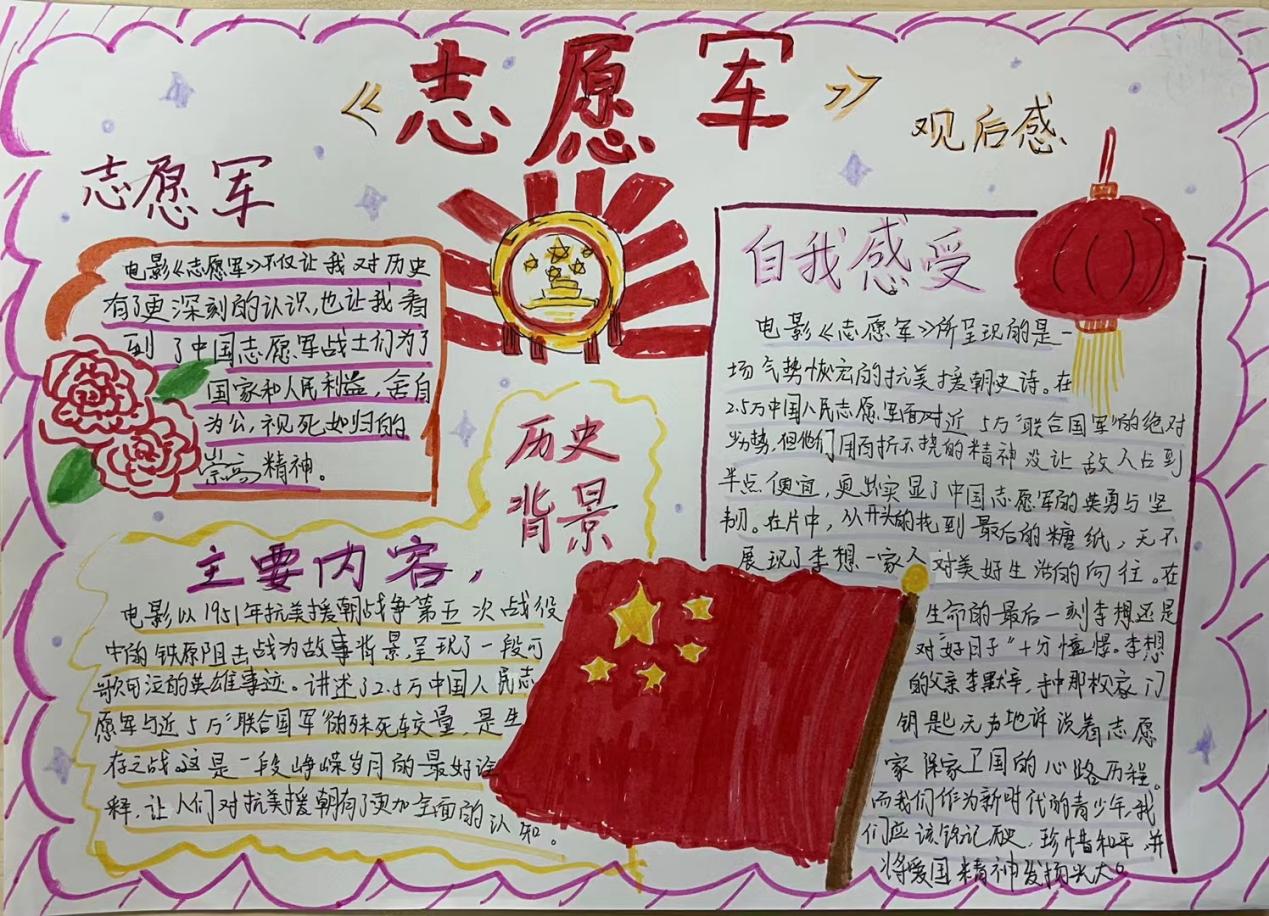 《志愿军》
观后感
志愿军
电影《志愿军》不仅让我对历史
有了更深刻的认识,也让我看
到了中国志愿军战士们为了
国家和人民利益,舍自
为公,视死如归的
崇高精神。
历史
背景
主要内容,
电影以1951年抗美援朝战争第五次战役
中的铁原阻击战为故事背景,呈现了一段可
歌可泣的英雄事迹。讲述了2.5万中国人民志
愿军与近5万"联合国军"的殊死较量,是生
存之战。这是一段峥嵘岁月的最好诠
释,让人们对抗美援朝有了更加全面的认知。
自我感受
电影《志愿军》所呈现的是一
场气势恢宏的抗美援朝史诗。在
2.5万中国人民志愿军面对近5万"联合国军"的绝对
劣势,但他们用百折不挠的精神没让敌人占到
半点便宜,更突显了中国志愿军的英勇与坚
韧。在片中,从开头的找到最后的糖纸,无不
展现了李想一家人对美好生活的向往。在
生命的最后一刻李想还是
对"好日子"十分憧憬。李想
的父亲李默尹,手中那枚家门
钥匙无声地诉说着志愿
家保家卫国的心路历程。
而我们作为新时代的青少年,我
们应该铭记历史,珍惜和平,并
将爱国精神发扬光大。